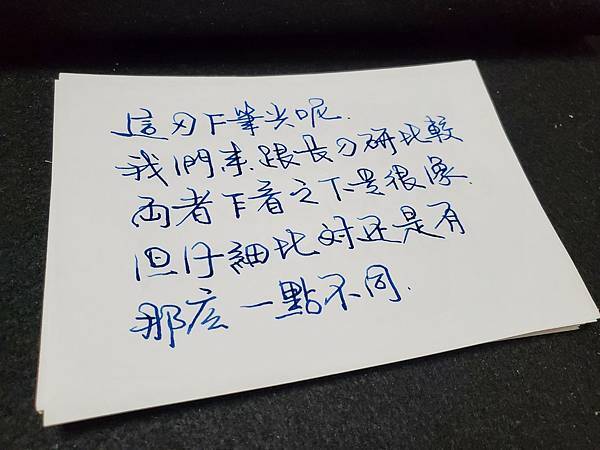 這刃下筆尖呢.
我們來跟長刀研比較
兩者下看之下是很像.
但仔細比对还是有
那麼一點不同.